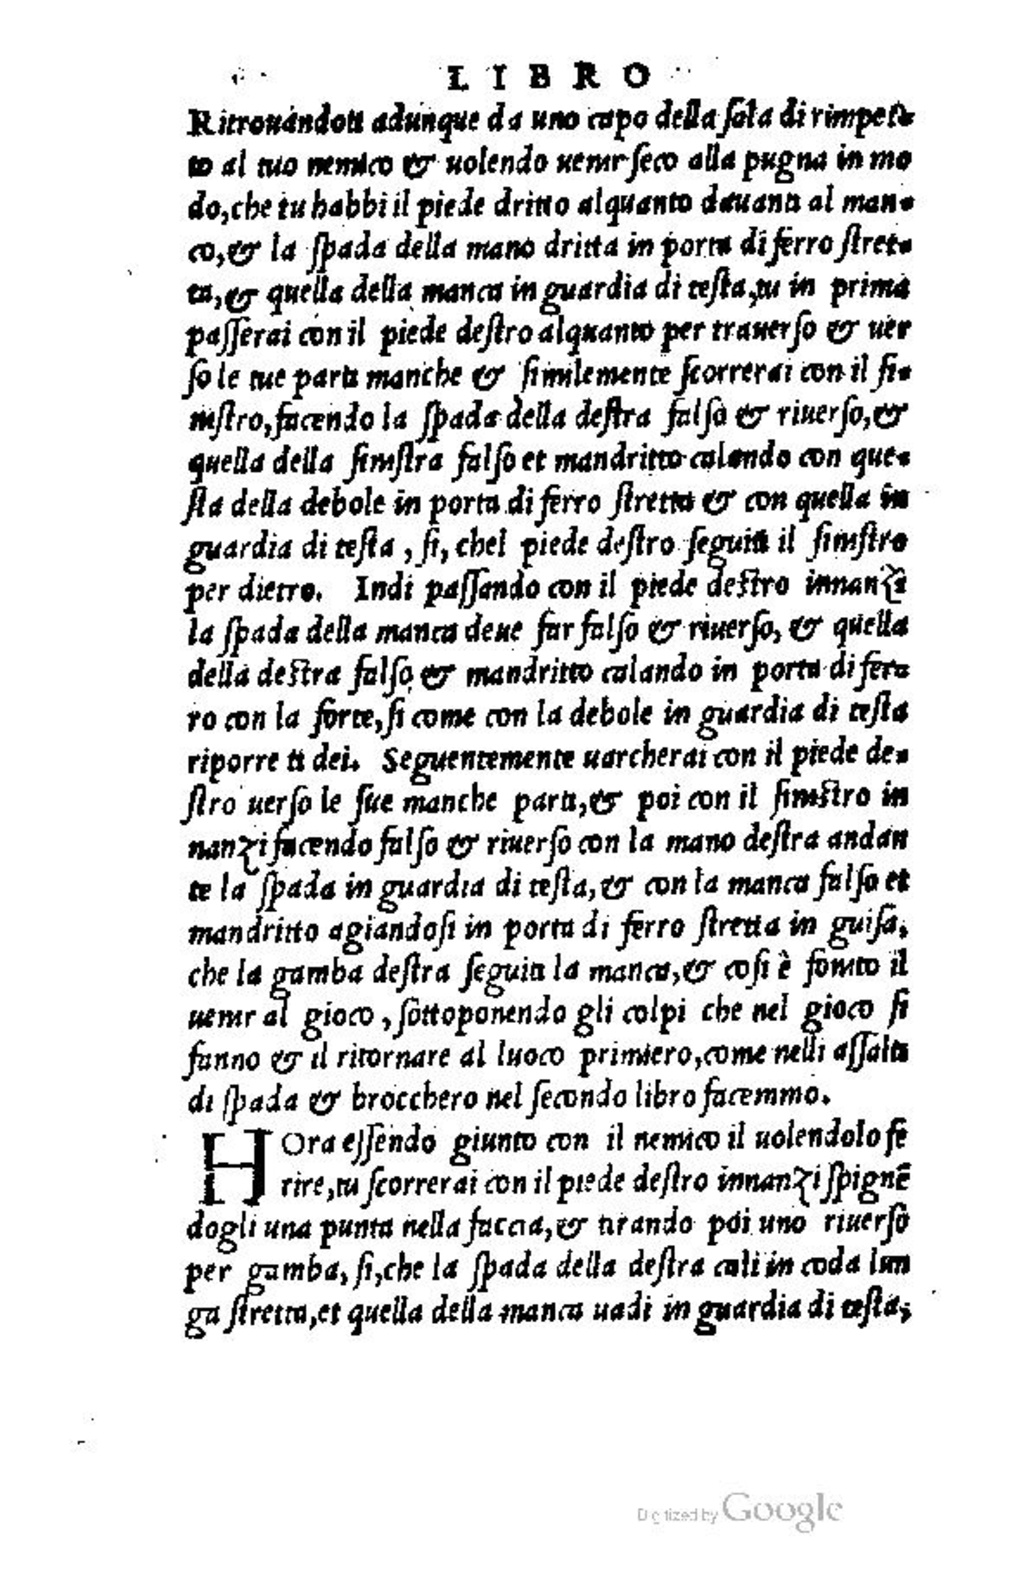 LIBRO
Ritrouandoti adunque da uno capo della sala di rimpet-
to al tuo nemico & uolendo uenir seco alla pugna in mo
do, che tu habbi il piede dritto alquanto dauanti al man-
co, & la spada della mano dritta in porta di ferro stret-
ta, & quella della manca in guardia di testa, tu in prima
passerai con il piede destro alquanto per trauerso & uer
so le tue parti manche & similemente scorrerai con il si-
nistro, facendo la spada della destra falso & riuerso, &
quella della sinistra falso et mandritto calando con que-
sta della debole in porta di ferro stretta & con quella in
guardia di testa, si, chel piede destro seguiti il sinistro
per dietro. Indi passando con il piede destro innanzi
la spada della manca deue far falso & riuerso, & quella
della destra falso & mandritto calando in porta di fer-
ro con la forte, si come con la debole in guardia di testa
riporre ti dei. Seguentemente uarcherai con il piede de-
stro uerso le sue manche parti, & poi con il sinistro in
nanzi facendo falso & riuerso con la mano destra andan
te la spada in guardia di testa, & con la manca falso et
mandritto agiandosi in porta di ferro stretta in guisa,
che la gamba destra seguiti la manca, & cosi è fornito il
uenir al gioco, sottoponendo gli colpi che nel gioco si
fanno & il ritornare al luoco primiero, come nelli assalti
di spada & brocchero nel secondo libro facemmo.
HOra essendo giunto con il nemico il uolendolo fe
rire, tu scorrerai con il piede destro innanzi spignē
dogli una punta nella faccia, & tirando poi uno riuerso
per gamba, si, che la spada della destra cali in coda lun
ga stretta, et quella della manca uadi in guardia di testa,
Digitized by Google